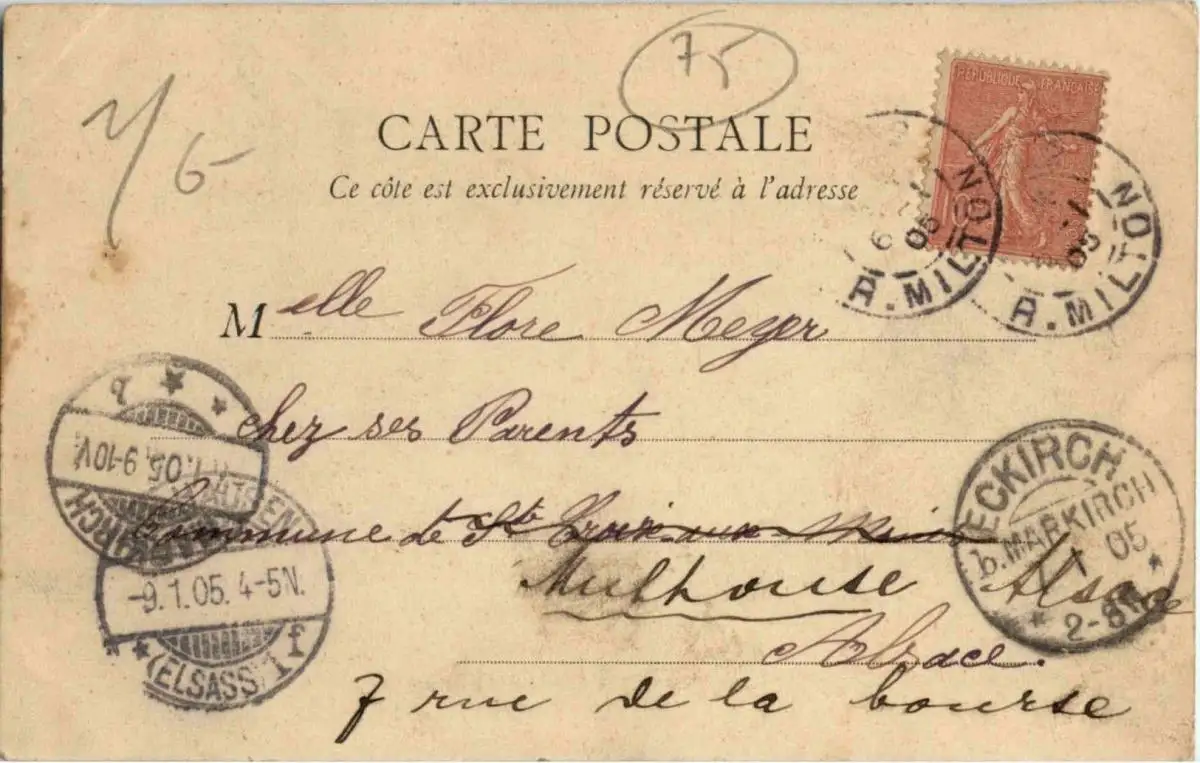 75
6
CARTE POSTALE
Ce côte est exclusivement réservé à l'adresse
RÉPUBLIQUE FRANÇAISE
6 05
R. MILTON
05
R. MILTON
Melle Flore Meyer
chez ses Parents
Commune de Ste Croix aux Mines
Mulhouse Alsace
Alsace.
7 rue de la bourse
1.05. 9-10V.
MARKIRCH
-9.1.05. 4-5N.
(ELSASS) 1 f
ECKIRCH
b. MARKIRCH
1 05
2-8N